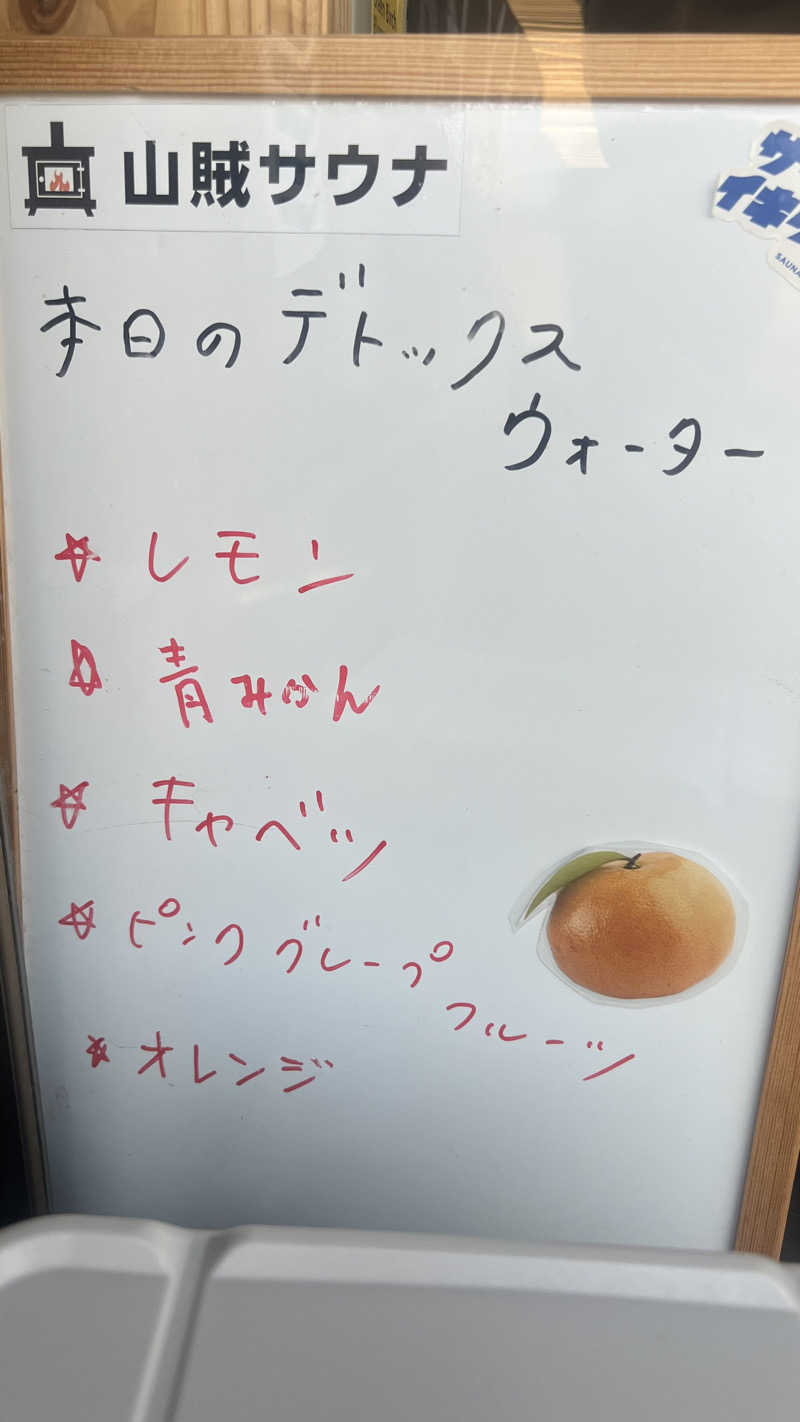 山賊サウナ
本日のデトックス
ウォーター
☆レモン
☆青みかん
☆キャベツ
☆ピンクグレープ
フルーツ
☆オレンジ
サ
イキ
SAUNA